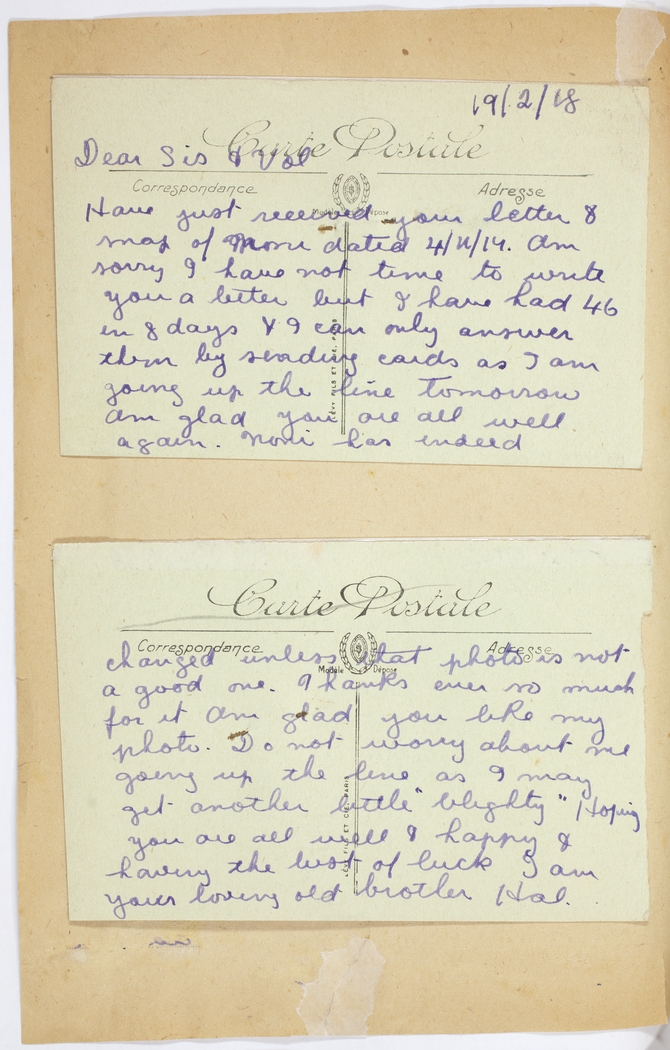 19/2/18
Carte Postale
Dear Sis & Val
Correspondance
Adresse
Modèle Déposé
Have just received your letter &
snap of Noni dated 4/11/17. Am
sorry I have not time to write
you a letter but I have had 46
in 8 days & I can only answer
them by sending cards as I am
going up the line tomorrow
am glad you are all well
again. Noni has indeed
LÉVY FILS ET CIE, PARIS
Carte Postale
Correspondance
Adresse
Modèle Déposé
changed unless that photo is not
a good one. Thanks ever so much
for it Am glad you like my
photo. Do not worry about me
going up the line as I may
get another little "blighty" Hoping
you are all well & happy &
having the best of luck I am
your loving old brother Hal.
LÉVY FILS ET CIE, PARIS